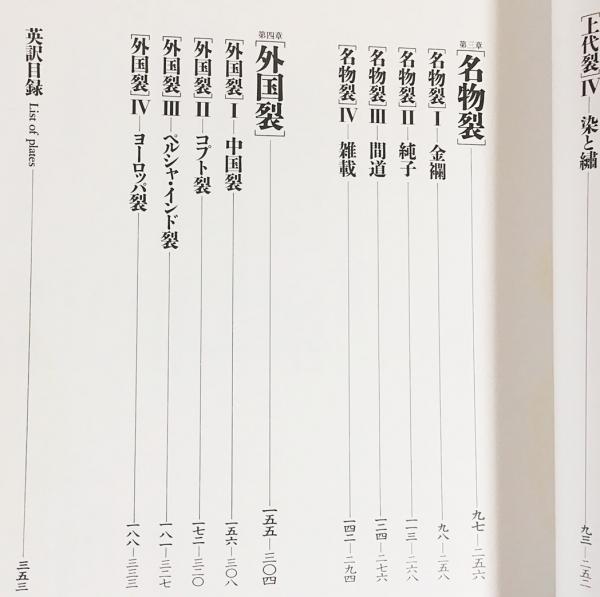 [上代裂]Ⅳ―染と繡――九三―二五二
第三章
[名物裂]――九七―二五六
[名物裂]Ⅰ―金襴――九八―二五八
[名物裂]Ⅱ―純子――一一三―二六八
[名物裂]Ⅲ―間道――一二四―二七六
[名物裂]Ⅳ―雑載――一四二―二九四
第四章
[外国裂]――一五五―三〇四
[外国裂]Ⅰ―中国裂――一五六―三〇八
[外国裂]Ⅱ―コプト裂――一七二―三二〇
[外国裂]Ⅲ―ペルシャ・インド裂――一八一―三二七
[外国裂]Ⅳ―ヨーロッパ裂――一八八―三三三
英訳目録 List of plates――三五三